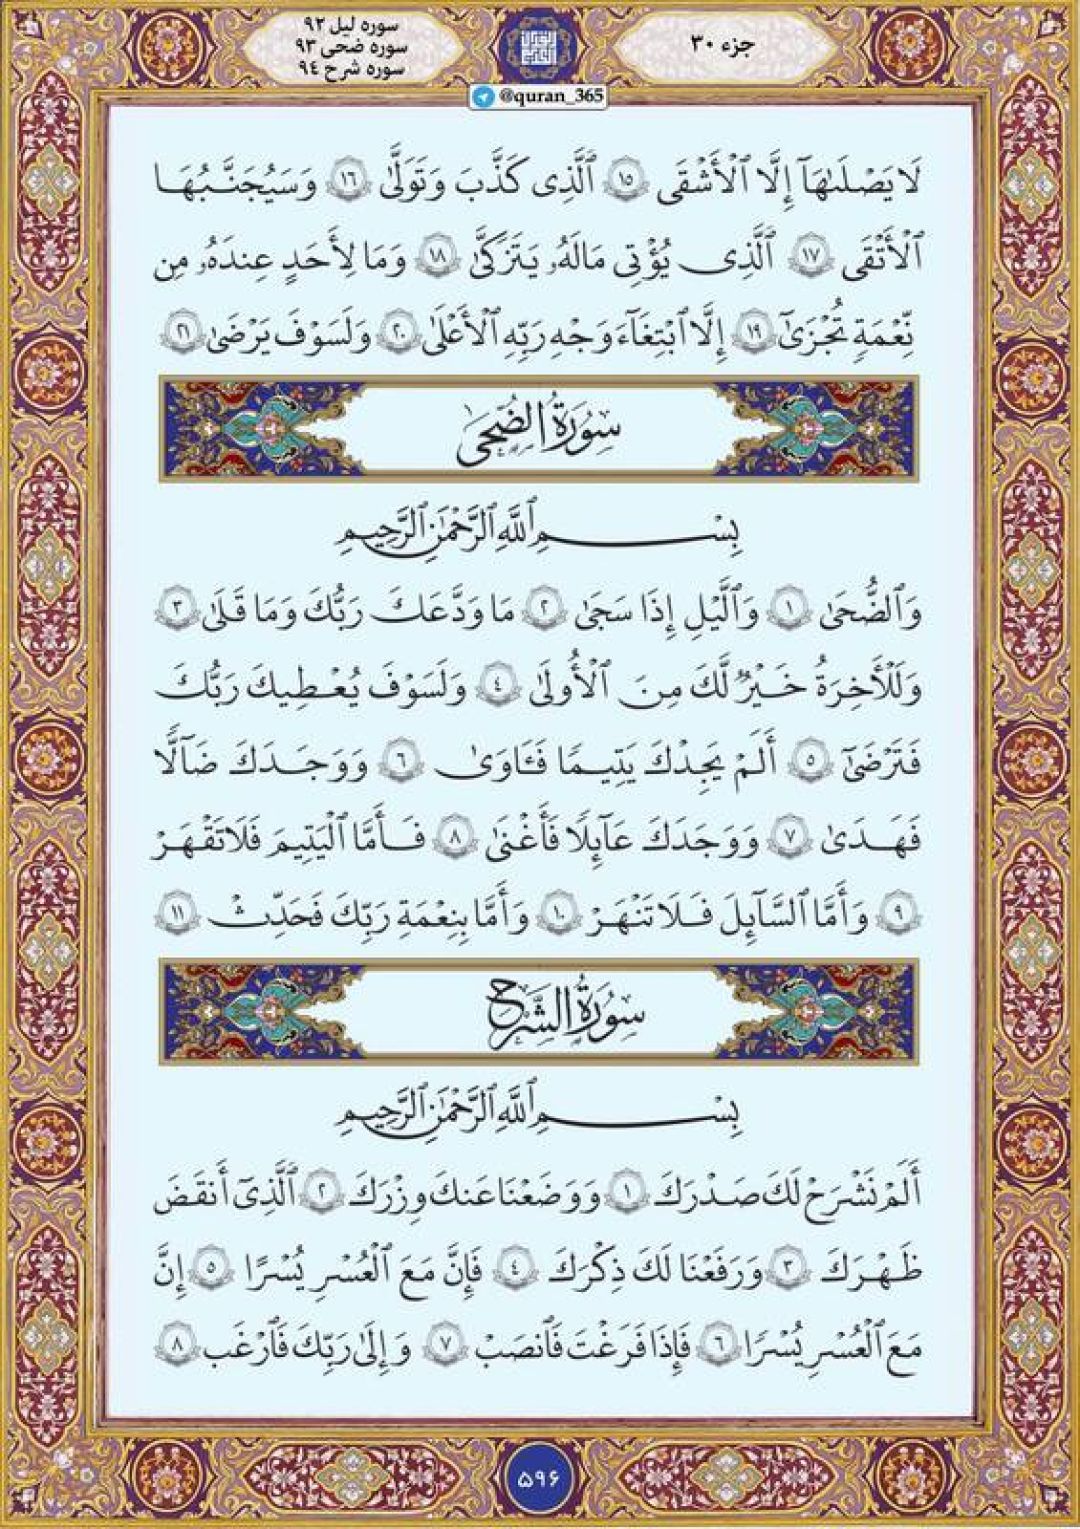 جزء ۳۰
سوره لیل ۹۲
سوره ضحی ۹۳
سوره شرح ۹٤
@quran_365
لَا يَصْلَىٰهَآ إِلَّا ٱلْأَشْقَى ١٥ ٱلَّذِى كَذَّبَ وَتَوَلَّىٰ ١٦ وَسَيُجَنَّبُهَا
ٱلْأَتْقَى ١٧ ٱلَّذِى يُؤْتِى مَالَهُۥ يَتَزَكَّىٰ ١٨ وَمَا لِأَحَدٍ عِندَهُۥ مِن
نِّعْمَةٍ تُجْزَىٰٓ ١٩ إِلَّا ٱبْتِغَآءَ وَجْهِ رَبِّهِ ٱلْأَعْلَىٰ ٢٠ وَلَسَوْفَ يَرْضَىٰ ٢١
سُورَةُ الضُّحَىٰ
بِسْمِ ٱللَّهِ ٱلرَّحْمَٰنِ ٱلرَّحِيمِ
وَٱلضُّحَىٰ ١ وَٱلَّيْلِ إِذَا سَجَىٰ ٢ مَا وَدَّعَكَ رَبُّكَ وَمَا قَلَىٰ ٣
وَلَلْأَخِرَةُ خَيْرٌ لَّكَ مِنَ ٱلْأُولَىٰ ٤ وَلَسَوْفَ يُعْطِيكَ رَبُّكَ
فَتَرْضَىٰٓ ٥ أَلَمْ يَجِدْكَ يَتِيمًا فَـَٔاوَىٰ ٦ وَوَجَدَكَ ضَآلًّا
فَهَدَىٰ ٧ وَوَجَدَكَ عَآئِلًا فَأَغْنَىٰ ٨ فَأَمَّا ٱلْيَتِيمَ فَلَا تَقْهَرْ
٩ وَأَمَّا ٱلسَّآئِلَ فَلَا تَنْهَرْ ١٠ وَأَمَّا بِنِعْمَةِ رَبِّكَ فَحَدِّثْ ١١
سُورَةُ الشَّرْحِ
بِسْمِ ٱللَّهِ ٱلرَّحْمَٰنِ ٱلرَّحِيمِ
أَلَمْ نَشْرَحْ لَكَ صَدْرَكَ ١ وَوَضَعْنَا عَنكَ وِزْرَكَ ٢ ٱلَّذِىٓ أَنقَضَ
ظَهْرَكَ ٣ وَرَفَعْنَا لَكَ ذِكْرَكَ ٤ فَإِنَّ مَعَ ٱلْعُسْرِ يُسْرًا ٥ إِنَّ
مَعَ ٱلْعُسْرِ يُسْرًا ٦ فَإِذَا فَرَغْتَ فَٱنصَبْ ٧ وَإِلَىٰ رَبِّكَ فَٱرْغَب ٨
۵۹۶